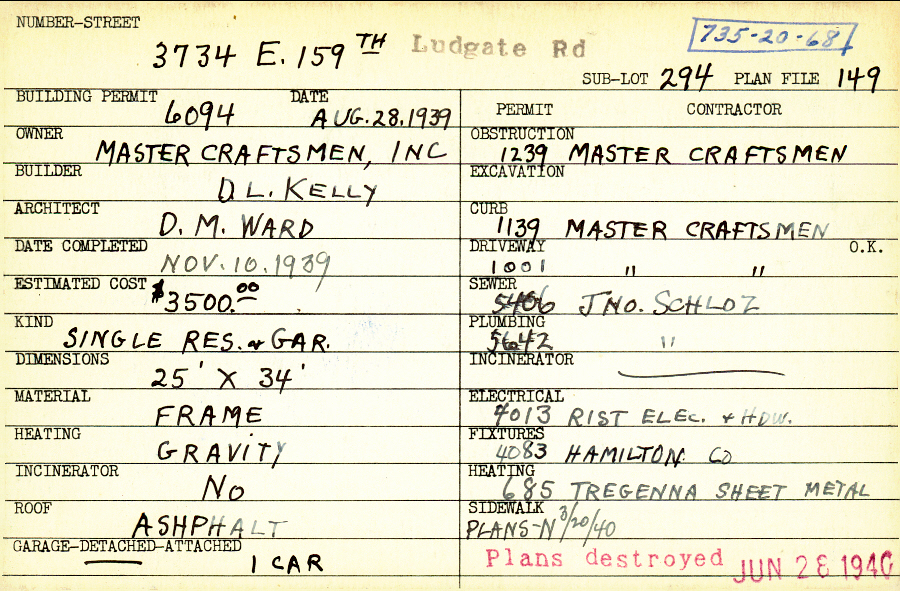 NUMBER-STREET
3734 E. 159TH Ludgate Rd
735-20-68
SUB-LOT 294 PLAN FILE 149
BUILDING PERMIT 6094 DATE AUG. 28. 1939
OWNER MASTER CRAFTSMEN, INC
BUILDER D. L. KELLY
ARCHITECT D. M. WARD
DATE COMPLETED NOV. 10. 1939
ESTIMATED COST $3500.00
KIND SINGLE RES. & GAR.
DIMENSIONS 25' X 34'
MATERIAL FRAME
HEATING GRAVITY
INCINERATOR NO
ROOF ASHPHALT
GARAGE-DETACHED-ATTACHED 1 CAR
PERMIT CONTRACTOR
OBSTRUCTION 1239 MASTER CRAFTSMEN
EXCAVATION
CURB 1139 MASTER CRAFTSMEN
DRIVEWAY O.K.
1001 " "
SEWER 5406 JNO. SCHLOZ
PLUMBING 5642 "
INCINERATOR
ELECTRICAL 4013 RIST ELEC. & HDW.
FIXTURES 4083 HAMILTON CO
HEATING 685 TREGENNA SHEET METAL
SIDEWALK
PLANS-N 3/20/40
Plans destroyed JUN 26 1940